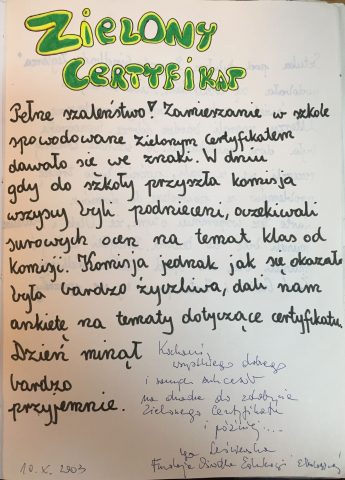 ZIELONY
CERTYFIKAT
Pełne szaleństwo! Zamieszanie w szkole
spowodowane zielonym certyfikatem
dawało się we znaki. W dniu
gdy do szkoły przyszła komisja
wszyscy byli podnieceni, oczekiwali
surowych ocen na temat klas od
komisji. Komisja jednak jak się okazało
była bardzo życzliwa, dali nam
ankietę na tematy dotyczące certyfikatu.
Dzień minął
bardzo
przyjemnie.
Kochani
wszystkiego dobrego
i samych sukcesów
na drodze do zdobycia
Zielonego Certyfikatu
i później...
Fundacja Ośrodka Edukacji Ekologicznej
10.X.2003